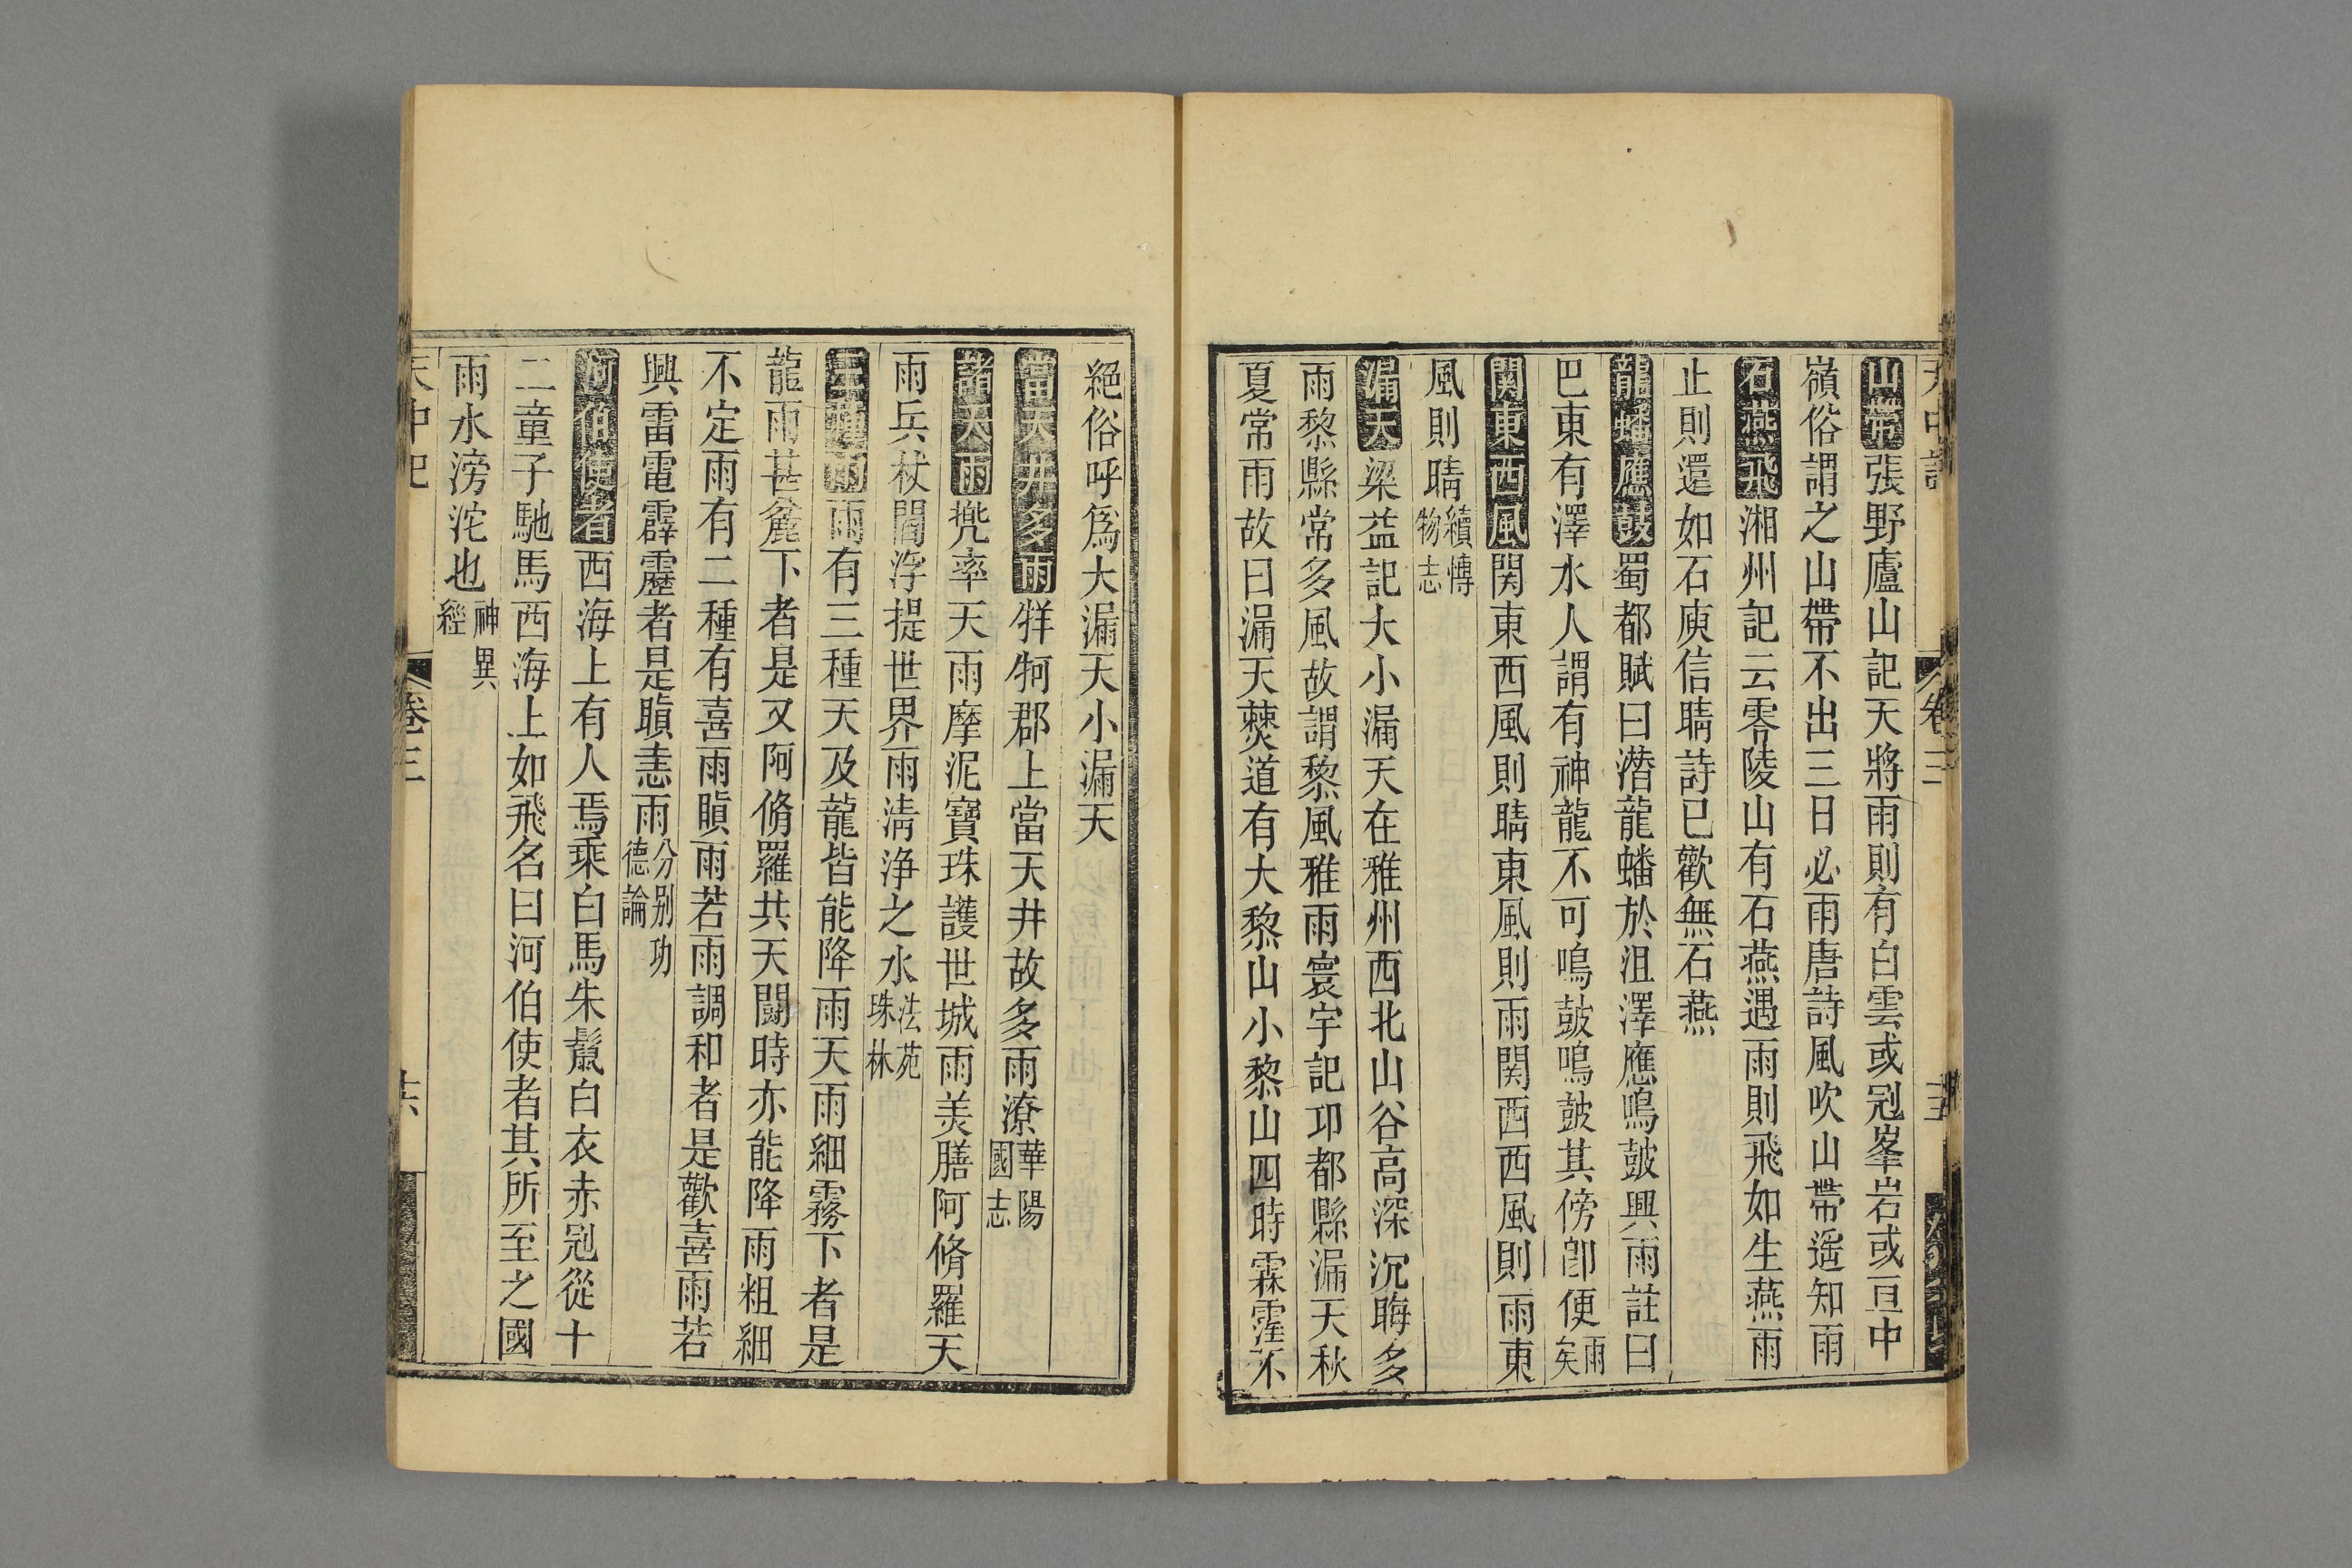 山帶張野廬山記天將雨則有白雲或冠峯岩或亘中
嶺俗謂之山帶不出三日必雨唐詩風吹山帶遥知雨
石燕飛湘州記云零陵山有石燕遇雨則飛如生燕雨
止則還如石庾信晴詩已歡無石燕
龍蟠應鼓蜀都賦曰潜龍蟠於沮澤應鳴鼓興雨註曰
巴東有澤水人謂有神龍不可鳴鼓鳴鼓其傍卽便雨矣
関東西風関東西風則晴東風則雨関西西風則雨東
風則晴續博物志
漏天梁益記大小漏天在雅州西北山谷高深沉晦多
雨黎縣常多風故謂黎風雅雨寰宇記卭都縣漏天秋
夏常雨故曰漏天僰道有大黎山小黎山四時霖霪不
絕俗呼爲大漏天小漏天
當天井多雨牂牁郡上當天井故多雨潦華陽國志
諸天雨兠率天雨摩泥寶珠護世城雨美膳阿脩羅天
雨兵杖閻浮提世界雨淸浄之水法苑珠林
三種雨雨有三種天及龍皆能降雨天雨細霧下者是
龍雨甚麄下者是又阿脩羅共天鬭時亦能降雨粗細
不定雨有二種有喜雨瞋雨若雨調和者是歡喜雨若
興雷電霹靂者是瞋恚雨分别功德論
河伯使者西海上有人焉乘白馬朱鬣白衣赤冠從十
二童子馳馬西海上如飛名曰河伯使者其所至之國
雨水滂沱也神異經
天中記
卷三
十六